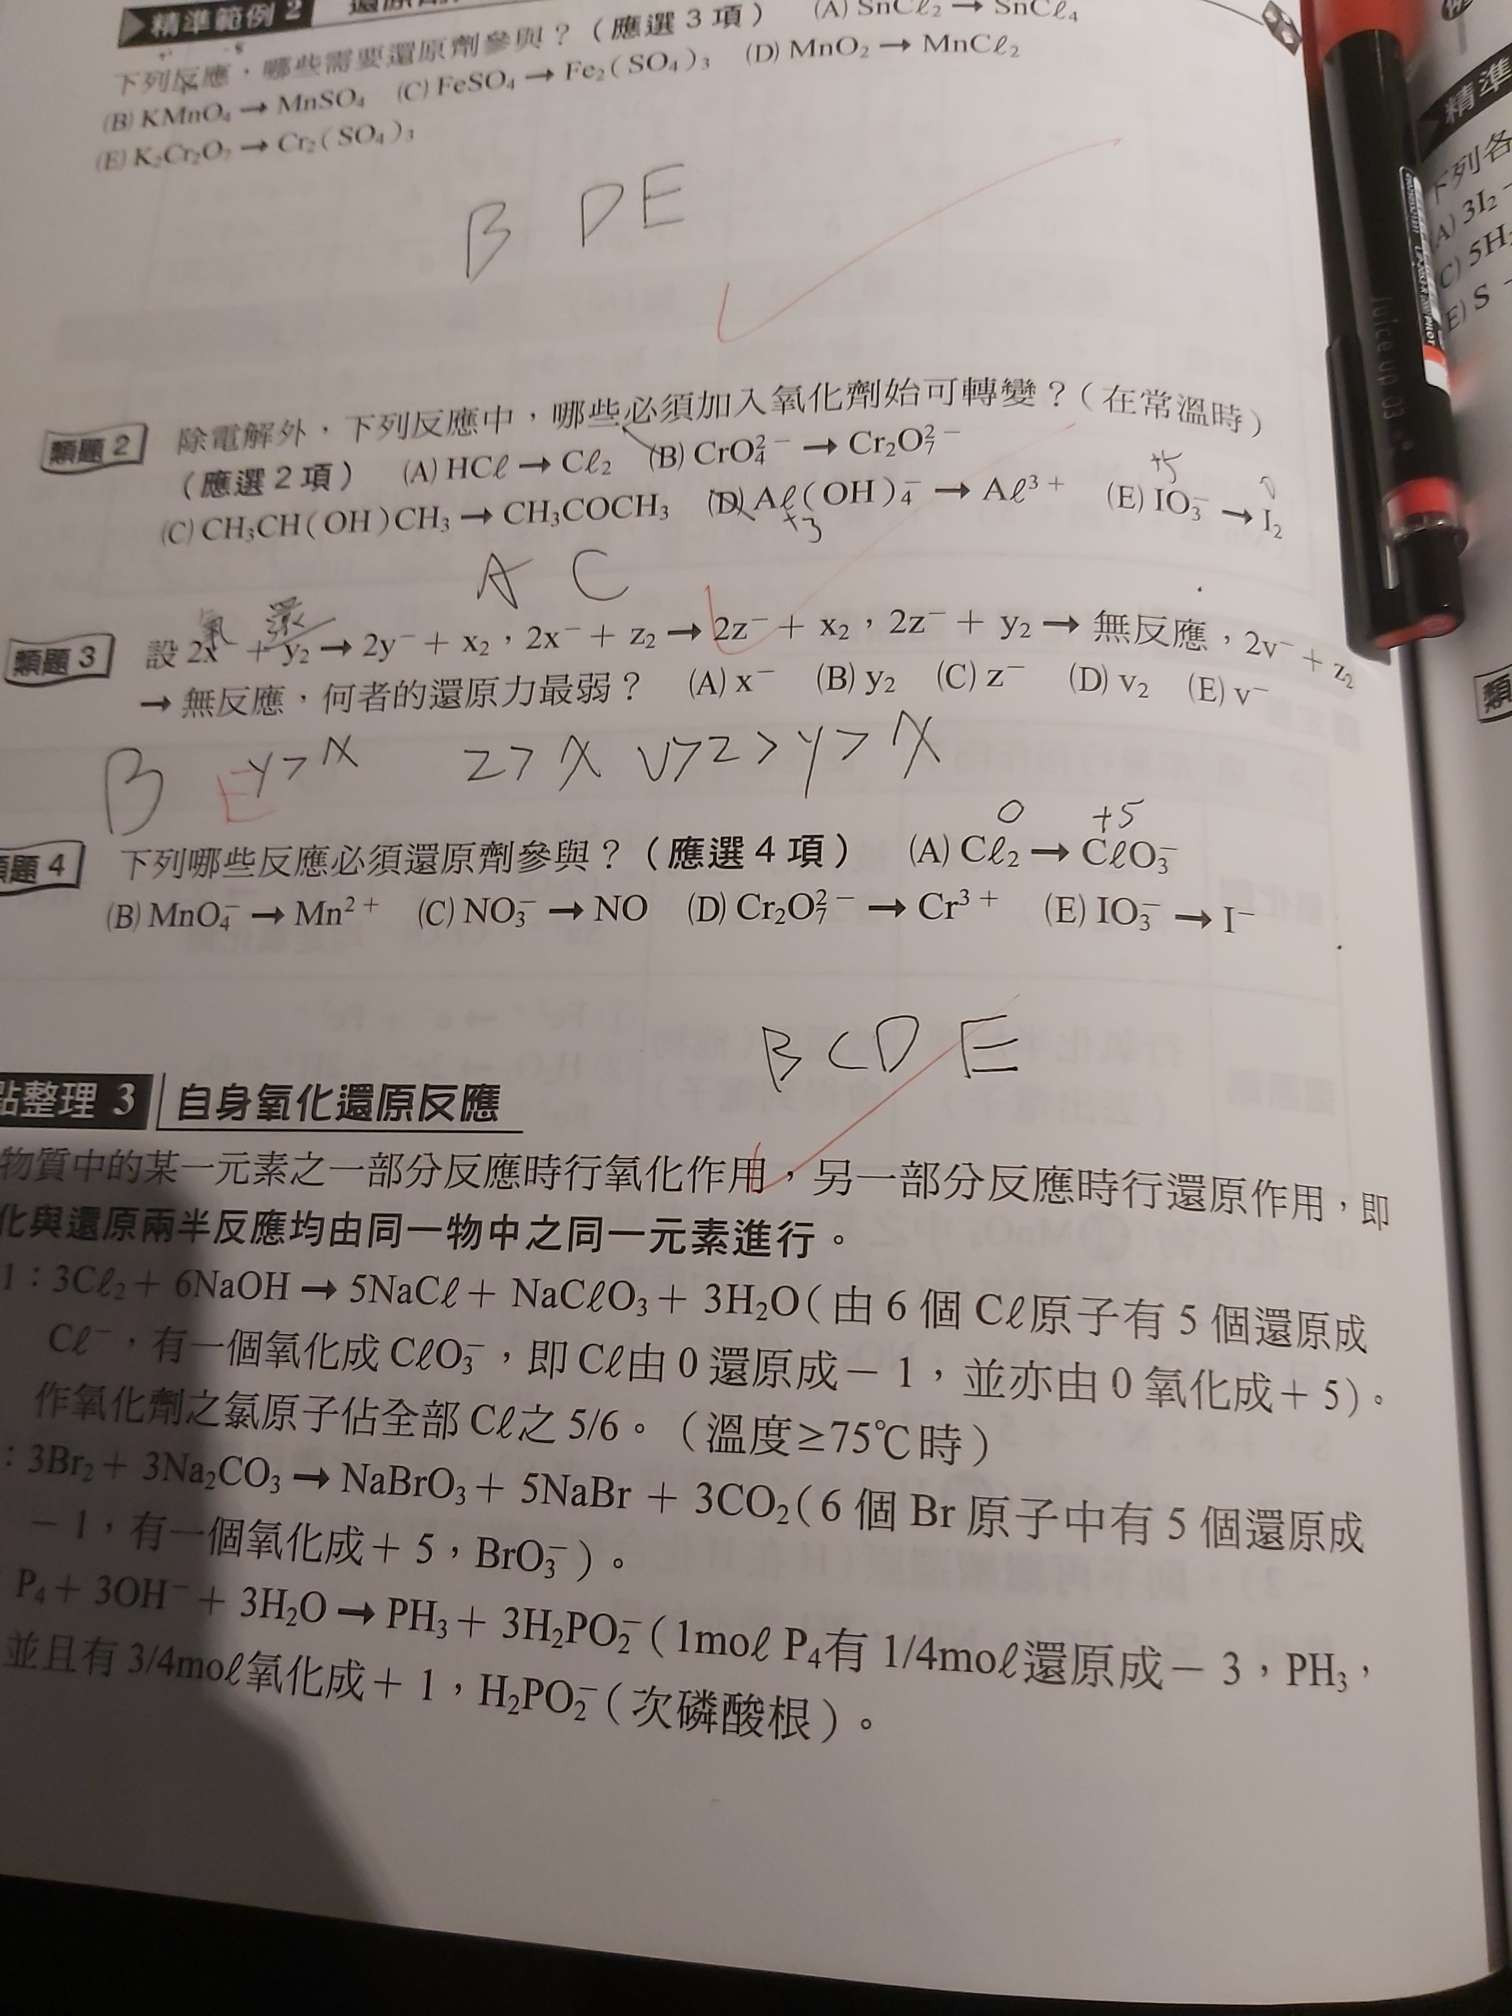 精準範例 2
下列反應，哪些需要還原劑參與？（應選 3 項） (A) SnCℓ₂ → SnCℓ₄
(B) KMnO₄ → MnSO₄ (C) FeSO₄ → Fe₂(SO₄)₃ (D) MnO₂ → MnCℓ₂
(E) K₂Cr₂O₇ → Cr₂(SO₄)₃
B D E
類題 2 除電解外，下列反應中，哪些必須加入氧化劑始可轉變？（在常溫時）
（應選 2 項） (A) HCℓ → Cℓ₂ (B) CrO₄²⁻ → Cr₂O₇²⁻
+5 0
(C) CH₃CH(OH)CH₃ → CH₃COCH₃ (D) Aℓ(OH)₄⁻ → Aℓ³⁺ (E) IO₃⁻ → I₂
+3
A C
氧 還
類題 3 設 2x⁻ + y₂ → 2y⁻ + x₂，2x⁻ + z₂ → 2z⁻ + x₂，2z⁻ + y₂ → 無反應，2v⁻ + z₂
→ 無反應，何者的還原力最弱？ (A) x⁻ (B) y₂ (C) z⁻ (D) v₂ (E) v⁻
B E y > x z > x v > z > y > x
0 +5
題 4 下列哪些反應必須還原劑參與？（應選 4 項） (A) Cℓ₂ → CℓO₃⁻
(B) MnO₄⁻ → Mn²⁺ (C) NO₃⁻ → NO (D) Cr₂O₇²⁻ → Cr³⁺ (E) IO₃⁻ → I⁻
B C D E
點整理 3 自身氧化還原反應
物質中的某一元素之一部分反應時行氧化作用，另一部分反應時行還原作用，即
化與還原兩半反應均由同一物中之同一元素進行。
1：3Cℓ₂ + 6NaOH → 5NaCℓ + NaCℓO₃ + 3H₂O（由 6 個 Cℓ原子有 5 個還原成
Cℓ⁻，有一個氧化成 CℓO₃⁻，即 Cℓ由 0 還原成 − 1，並亦由 0 氧化成 + 5）。
作氧化劑之氯原子佔全部 Cℓ之 5/6。（溫度≥75℃時）
：3Br₂ + 3Na₂CO₃ → NaBrO₃ + 5NaBr + 3CO₂（6 個 Br 原子中有 5 個還原成
− 1，有一個氧化成 + 5，BrO₃⁻）。
P₄ + 3OH⁻ + 3H₂O → PH₃ + 3H₂PO₂⁻（1moℓ P₄有 1/4moℓ還原成 − 3，PH₃，
並且有 3/4moℓ氧化成 + 1，H₂PO₂⁻（次磷酸根）。
精準
下列各
A) 3I₂
C) 5H
E) S
類
Juice up 03
PILOT